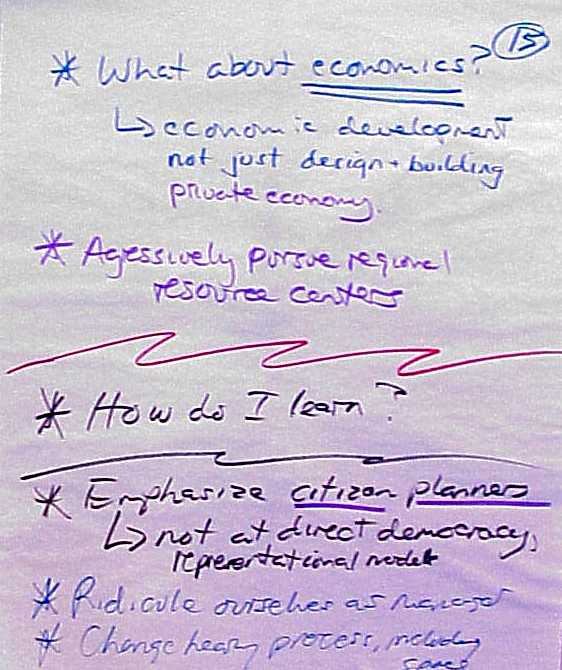 15
* What about economics?
↳ economic development
not just design + building
private economy.
* Agessively pursue regional
resource centers
* How do I learn?
* Emphasize citizen planners
↳ not at direct democracy,
representational model
* Ridicule ourselves as
* Change heavy process, including